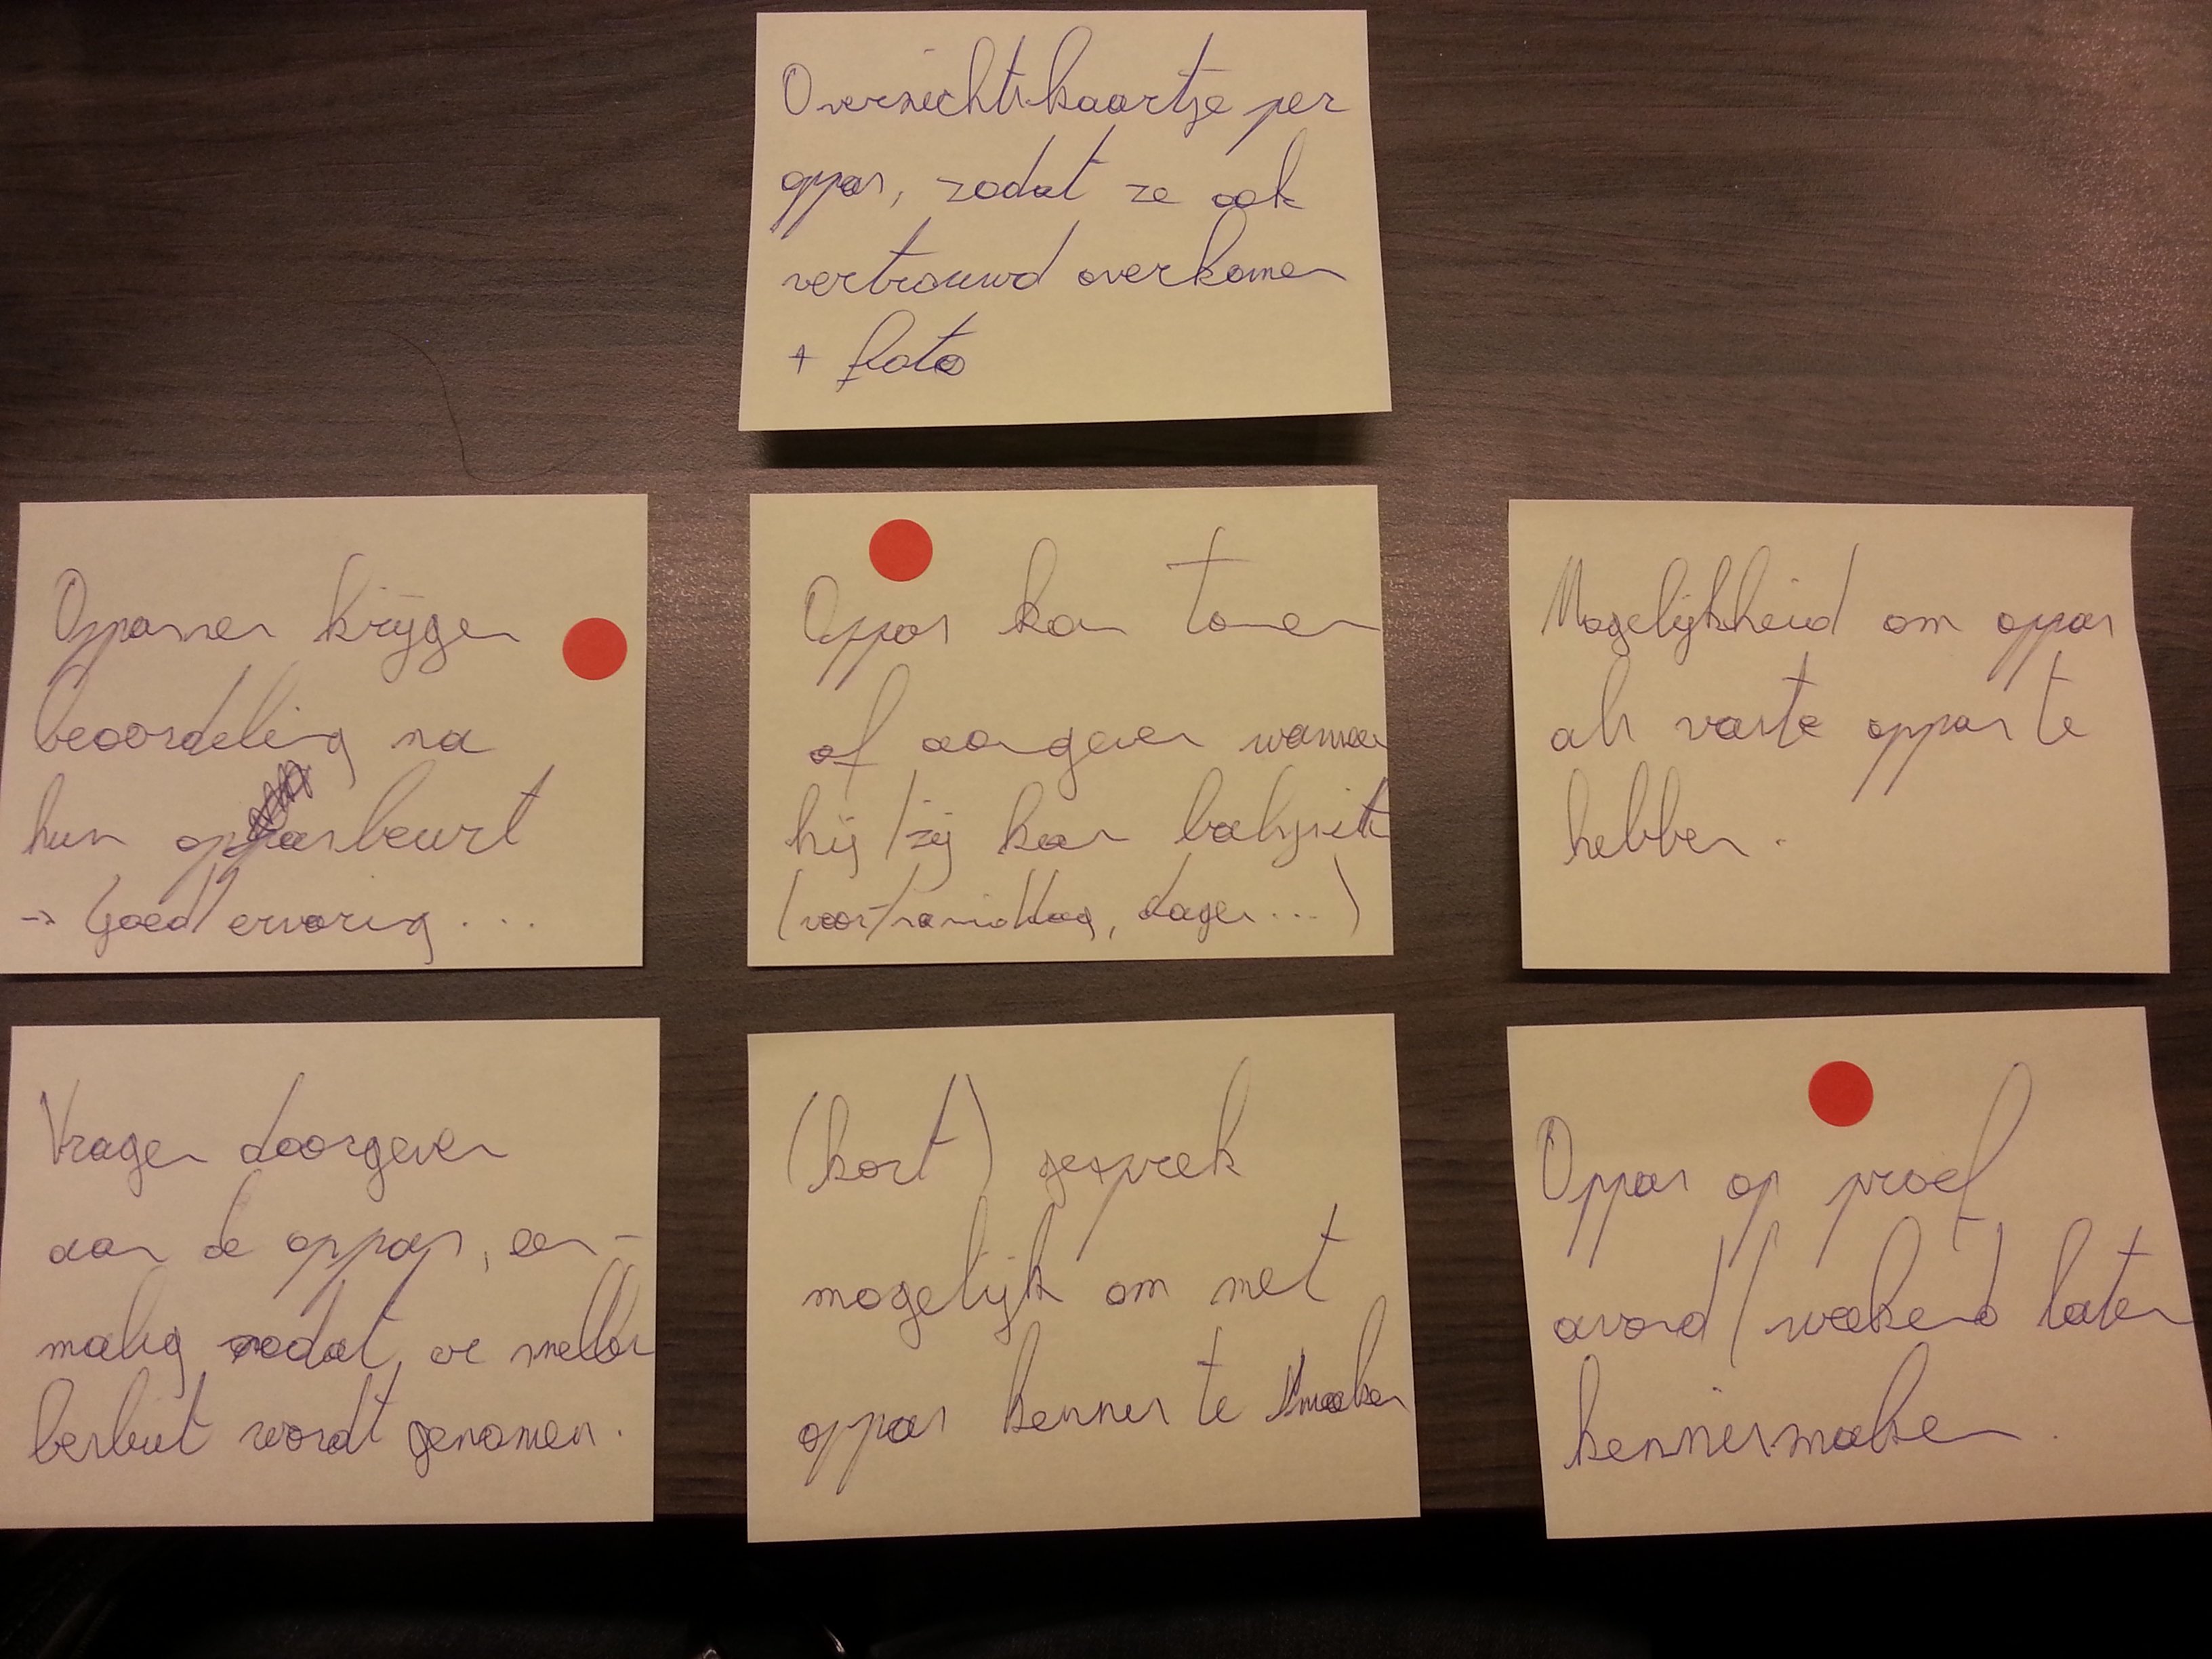 Overzichtskaartje per
oppas, zodat ze ook
vertrouwd overkomen
+ foto
Oppassen krijgen
beoordeling na
hun oppasbeurt
-> Goed/ervaring ...
Oppas kan tonen
of aangeven wanneer
hij/zij kan babysitten
(voor/namiddag, dagen...)
Mogelijkheid om oppas
als vaste oppas te
hebben.
Vragen doorgeven
aan de oppas, een-
malig zodat er sneller
besluit wordt genomen.
(kort) gesprek
mogelijk om met
oppas kennis te maken
Oppas op proef
avond/weekend laten
kennismaken.